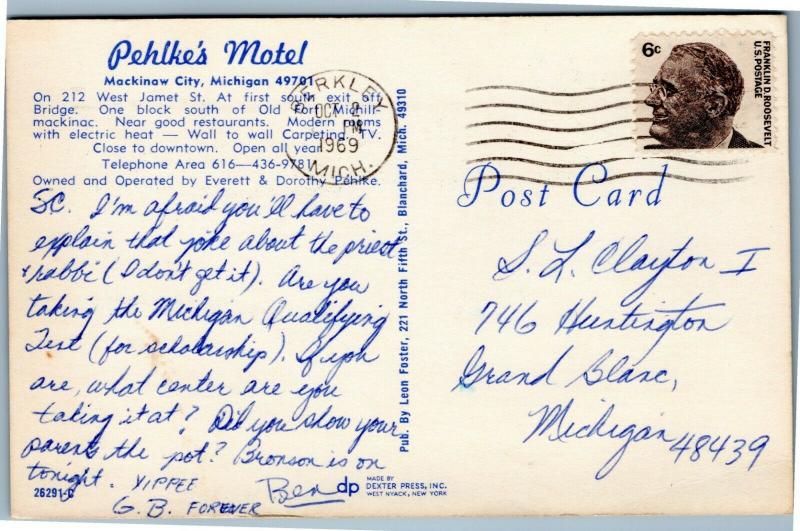 Pehlke's Motel
Mackinaw City, Michigan 49701
On 212 West Jamet St. At first south exit off
Bridge. One block south of Old Fort Michili-
mackinac. Near good restaurants. Modern rooms
with electric heat — Wall to wall Carpeting, TV.
Close to downtown. Open all year.
Telephone Area 616—436-9781
Owned and Operated by Everett & Dorothy Pehlke.
SC. I'm afraid you'll have to
explain that joke about the priest
+ rabbi (I don't get it). Are you
taking the Michigan Qualifying
Test (for scholarship). If you
are, what center are you
taking it at? Did you show your
parents the pot? Bronson is on
tonight. YIPPEE
G.B. FOREVER Ben
26291-C
Pub. By Leon Foster, 221 North Fifth St., Blanchard, Mich. 49310
dp MADE BY
DEXTER PRESS, INC.
WEST NYACK, NEW YORK
BERKLEY
OCT 2
PM
1969
MICH.
6c
FRANKLIN D. ROOSEVELT
U.S. POSTAGE
Post Card
S. L. Clayton I
746 Huntington
Grand Blanc,
Michigan 48439